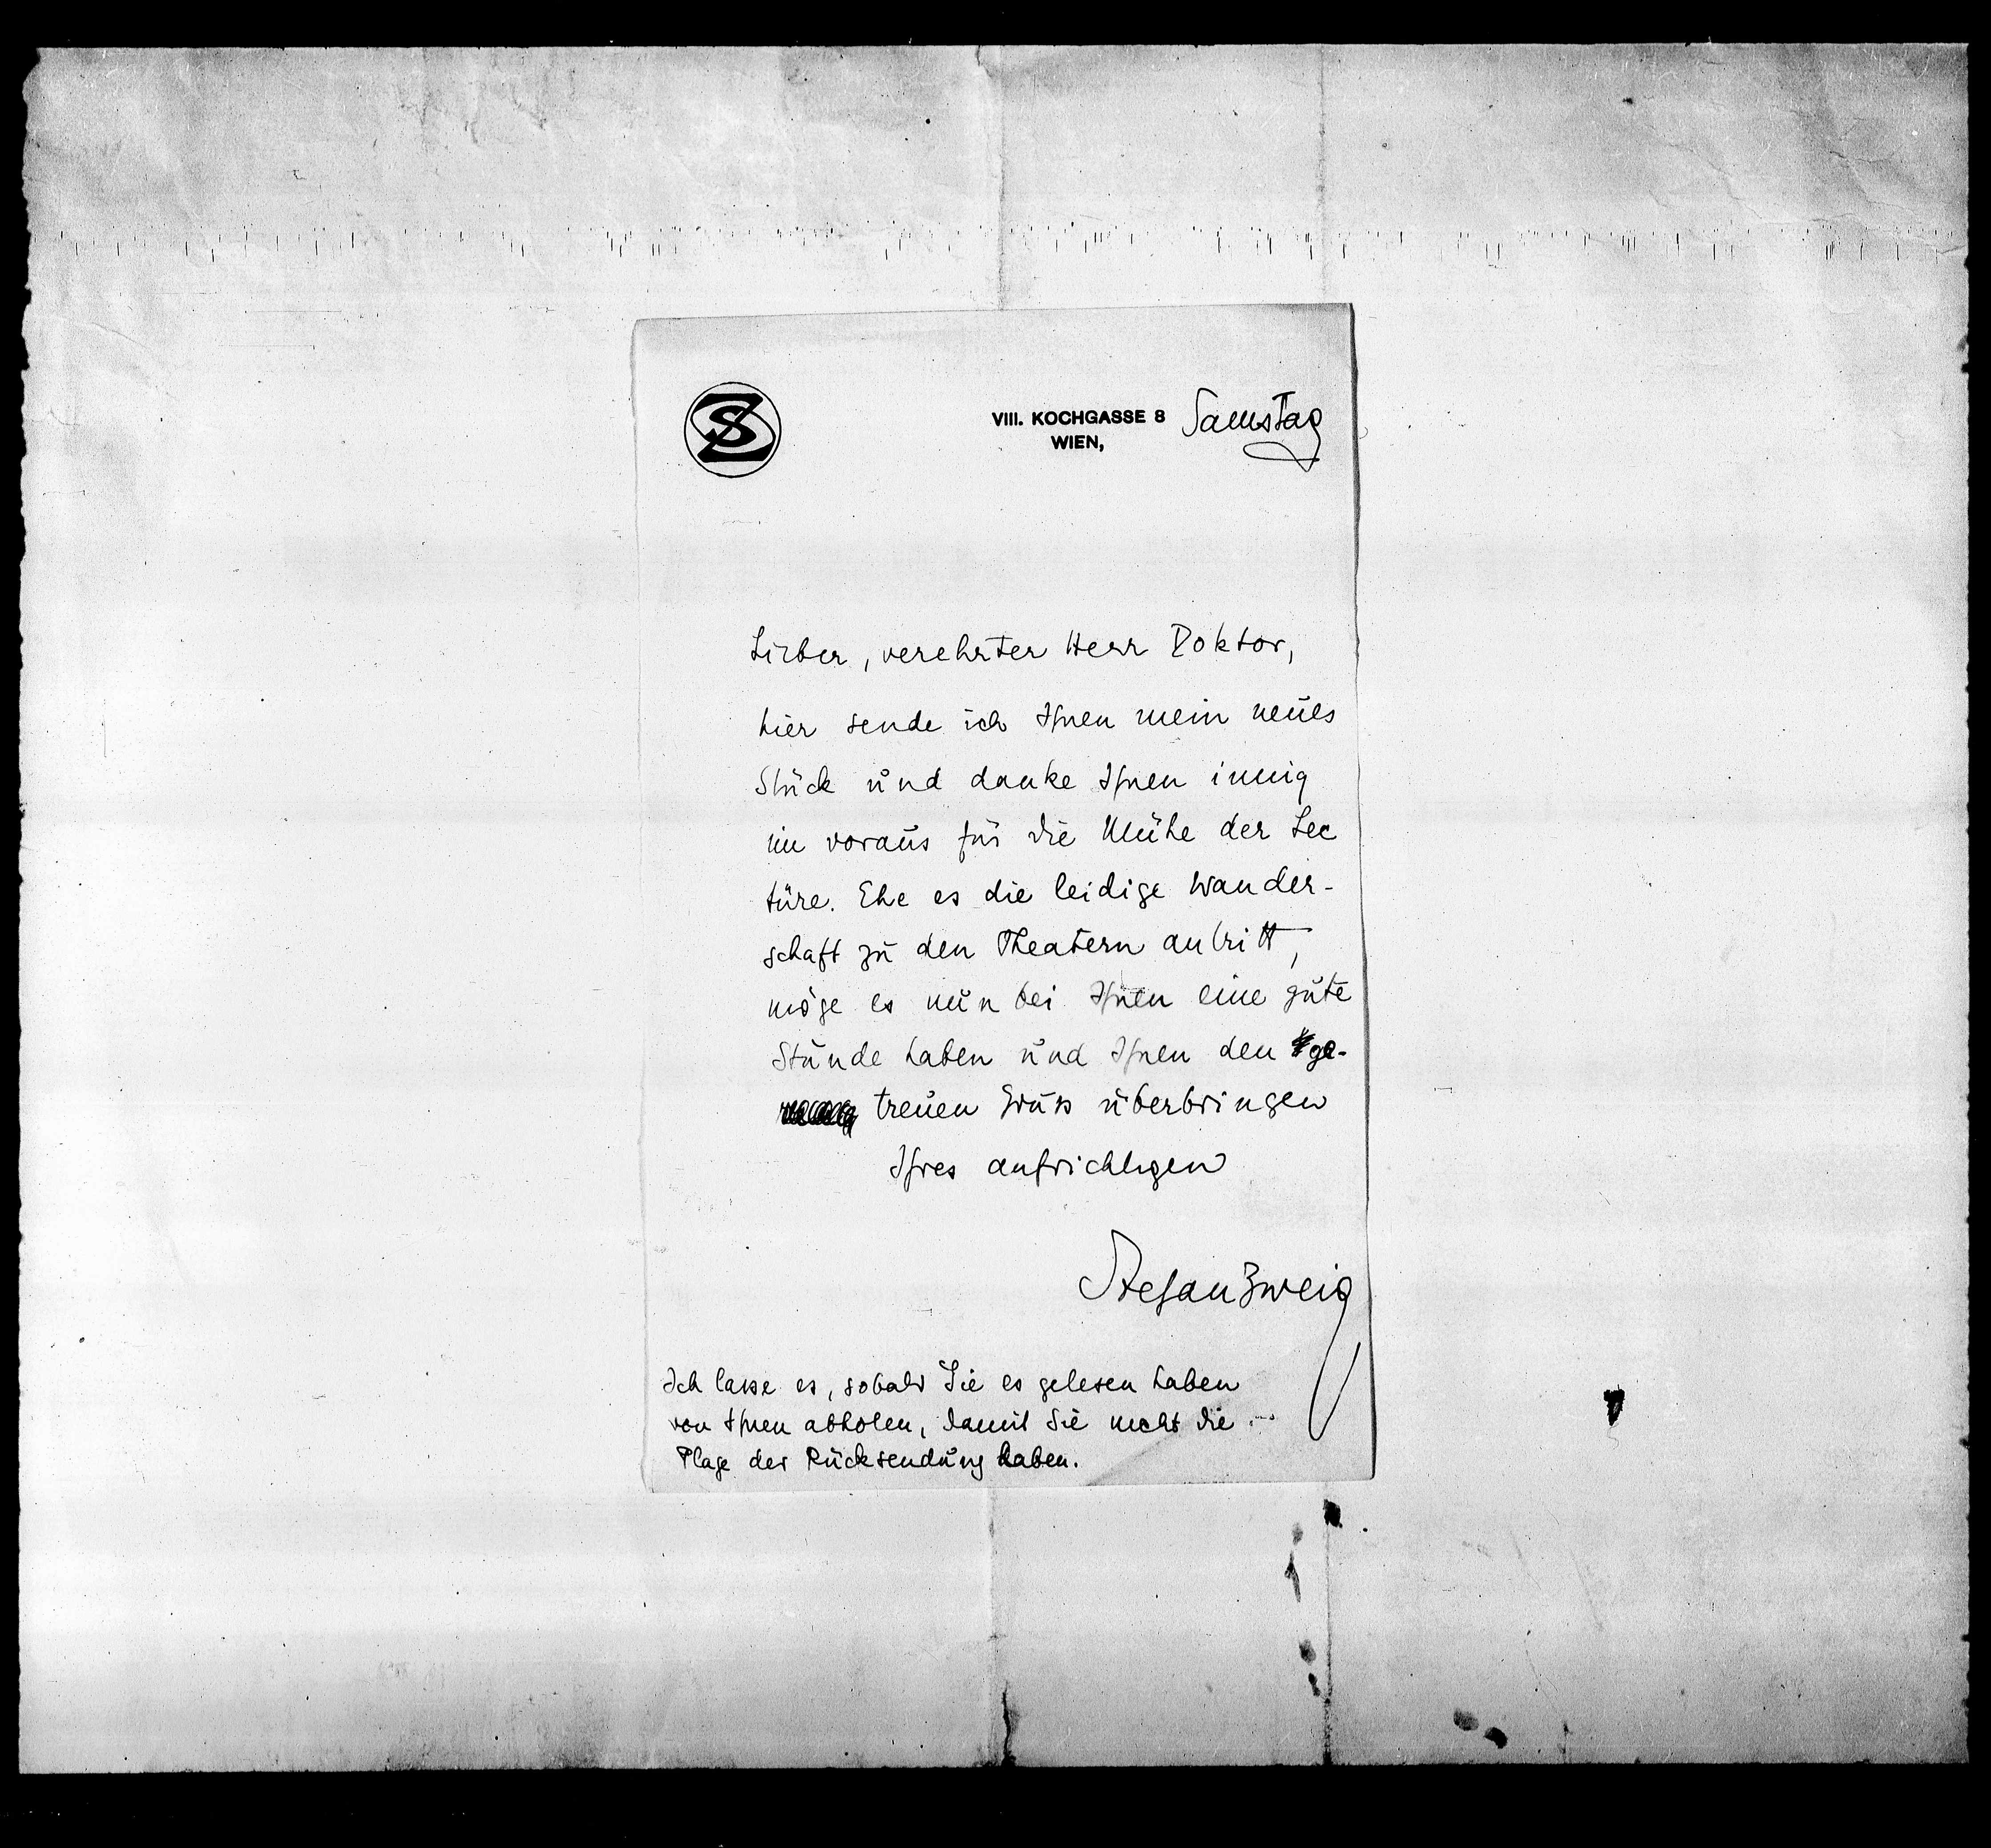 SZ
VIII. KOCHGASSE 8 Samstag
WIEN,
Lieber, verehrter Herr Doktor,
hier sende ich Ihnen mein neues
Stück und danke Ihnen innig
im voraus für die Mühe der Lec
türe. Ehe es die leidige Wander-
schaft zu den Theatern antritt,
möge es nun bei Ihnen eine gute
Stunde haben und Ihnen den ge-
treuen Gruss überbringen
Ihres aufrichtigen
Stefan Zweig
Ich lasse es, sobald Sie es gelesen haben
von Ihnen abholen, damit Sie nicht die
Plage der Rücksendung haben.